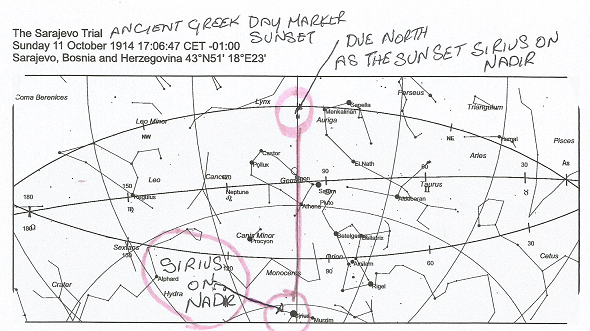 The Sarajevo Trial ANCIENT GREEK DAY MARKER
SUNSET
Sunday 11 October 1914 17:06:47 CET -01:00
Sarajevo, Bosnia and Herzegovina 43°N51' 18°E23'
DUE NORTH
AS THE SUNSET SIRIUS ON
NADIR
Coma Berenices
Lynx
Perseus
Capella
Menkalinan
Triangulum
Leo Minor
Auriga
N
NW
NE
Hamal
Pisces
Castor
Pollux
El Nath
Aries
As
Leo
Cancer
Gemini
90
60
30
Taurus
150
Regulus
120
Neptune
Saturn
Pluto
Aldebaran
180
Athena
180
Canis Minor
Procyon
Betelgeuse
Bellatrix
Sextans
150
120
Orion
Alnilam
90
60
30
Cetus
Monoceros
Alphard
Hydra
Rigel
Crater
SIRIUS
ON
NADIR
Sirius
Murzim